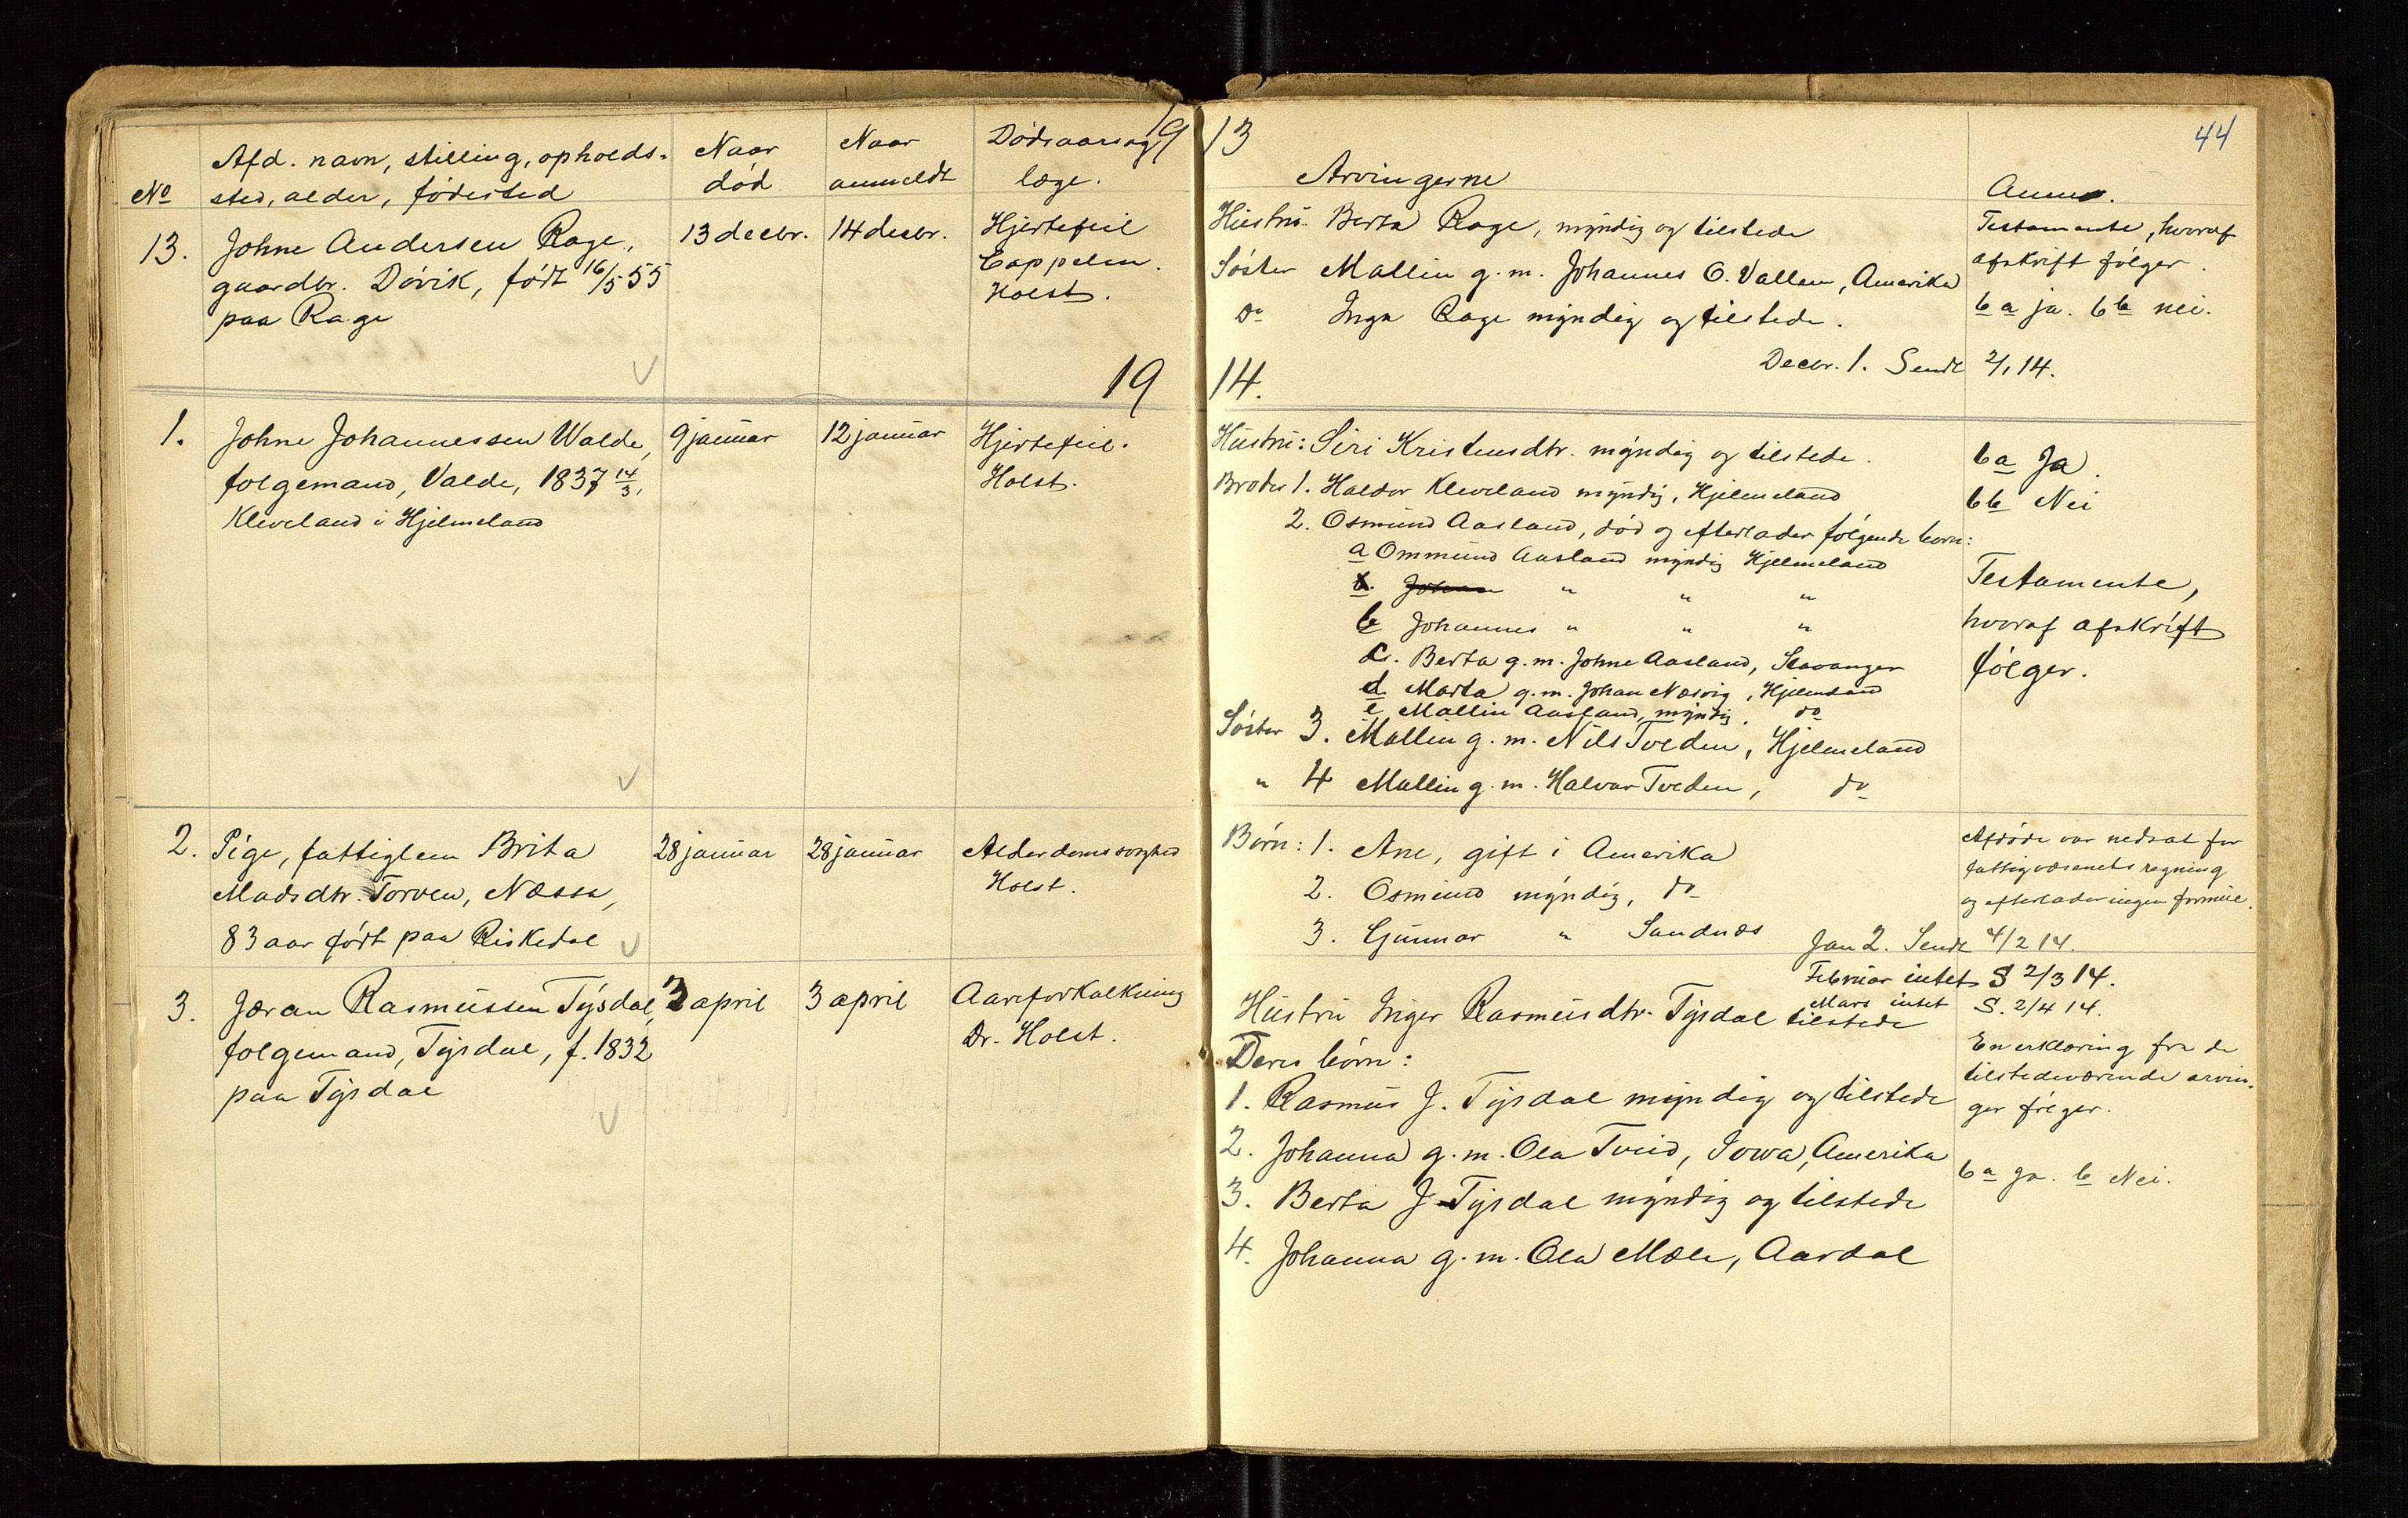 19 13
44
No
Afd. navn, stilling, opholds-
sted, alder, fødested
Naar
død
Naar
anmeldt
Dødsaarsag
læge.
Arvingerne
Anm.
13.
Johne Andersen Rage,
gaardbr. Døvik, født 16/5 55
paa Rage
13 decbr.
14 decbr.
Hjertefeil
Cappelen.
Holst.
Hustru. Berta Rage, myndig og tilstede
Søster Mallin g. m. Johannes O. Vallen, Amerika
Do Inga Rage myndig og tilstede.
Testamente, hvoraf
afskrift følger.
6 a ja. 6 b nei.
Decbr. 1. Sendt 2/1 14.
19 14.
1.
Johne Johannessen Valde,
følgemand, Valde, 1837 14/3,
Kleveland i Hjelmeland
9 januar
12 januar
Hjertefeil.
Holst.
Hustru: Siri Kristensdtr. myndig og tilstede.
Broder 1. Haldor Kleveland myndig, Hjelmeland
2. Osmund Aasland, død og efterlader følgende børn:
a Ommund Aasland myndig Hjelmeland
b. Johan " " "
b Johannes " " "
c. Berta g. m. Johne Aasland, Stavanger
d. Marta g. m. Johan Næsvig, Hjelmeland
e Mallin Aasland, myndig. do
Søster 3. Mallin g. m. Nils Tveden, Hjelmeland
" 4 Mallin g. m. Halvar Tveden, do
6 a Ja.
6 b Nei
Testamente,
hvoraf afskrift
følger.
2.
Pige, fattiglem Brita
Madsdtr. Torven, Næssa,
83 aar født paa Riskedal
28 januar
28 januar
Alderdomssvaghed
Holst.
Børn: 1. Ane, gift i Amerika
2. Osmund myndig, do
3. Gunnar " Sandnæs
Afdøde var nedsat for
fattigvæsenets regning
og efterlader ingen formue.
Jan 2. Sendt 4/2 14.
Februar intet S 2/3 14.
Mars intet S. 2/4 14.
3.
Jøran Rasmussen Tysdal,
følgemand, Tysdal, f. 1832
paa Tysdal
3 april
3 april
Aareforkalkning
Dr. Holst.
Hustru Inger Rasmusdtr. Tysdal tilstede
Deres børn:
1. Rasmus J. Tysdal myndig og tilstede
2. Johanna g. m. Ola Tveid, Iowa, Amerika
3. Berta J. Tysdal myndig og tilstede
4. Johanna g. m. Ola Mæle, Aardal
En erklæring fra de
tilstedeværende arvin-
ger følger.
6 a ja. b Nei.